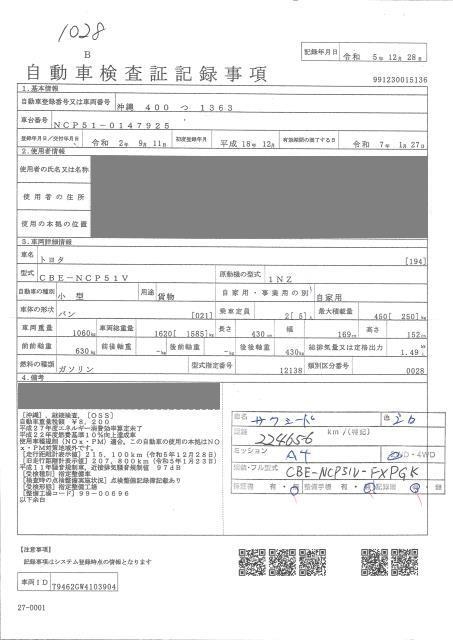 1028
B
記録年月日 令和 5年 12月 28日
自動車検査証記録事項
991230015136
1.基本情報
自動車登録番号又は車両番号 沖縄 400 つ 1363
車台番号 NCP51-0147925
登録年月日/交付年月日 令和 2年 9月 11日 初度登録年月 平成 18年 12月 有効期間の満了する日 令和 7年 1月 27日
2.使用者情報
使用者の氏名又は名称
使用者の住所
使用の本拠の位置
3.車両詳細情報
車名 トヨタ [194]
型式 CBE-NCP51V 原動機の型式 1NZ
自動車の種別 小型 用途 貨物 自家用・事業用の別 自家用
車体の形状 バン [021] 乗車定員 2[ 5]人 最大積載量 450[ 250]kg
車両重量 1060kg 車両総重量 1620[ 1585]kg 長さ 430cm 幅 169cm 高さ 152cm
前前軸重 630kg 前後軸重 - kg 後前軸重 - kg 後後軸重 430kg 総排気量又は定格出力 1.49 L
燃料の種類 ガソリン 型式指定番号 12138 類別区分番号 0028
4.備考
[沖縄], 継続検査, [OSS]
自動車重量税額 ¥8,200
平成27年度エネルギー消費効率算定未了
平成22年度燃費基準10%向上達成車
使用車種規制(NOx・PM)適合, この自動車の使用の本拠はNO
x・PM対策地域外です。
[走行距離計表示値] 215,100km (令和5年12月28日)
[旧走行距離計表示値] 207,800km (令和5年1月23日)
平成11年騒音規制車, 近接排気騒音規制値 97dB
[受検種別] 指定整備車
[検査時の点検整備実施状況] 点検整備記録簿記載あり
[受検形態] 指定整備工場
[整備工場コード] 99-00696
以下余白
車名 サクシード 色
224656 km/(特記)
ミッション AT 2WD・4WD
型式・フル型式 CBE-NCP51V-FXPGK
保証書 有・無 整備手帳 有・無 記録簿 有・無
【注意事項】
記録事項はシステム登録時点の情報となります
車両ID T9462GW4103904
27-0001